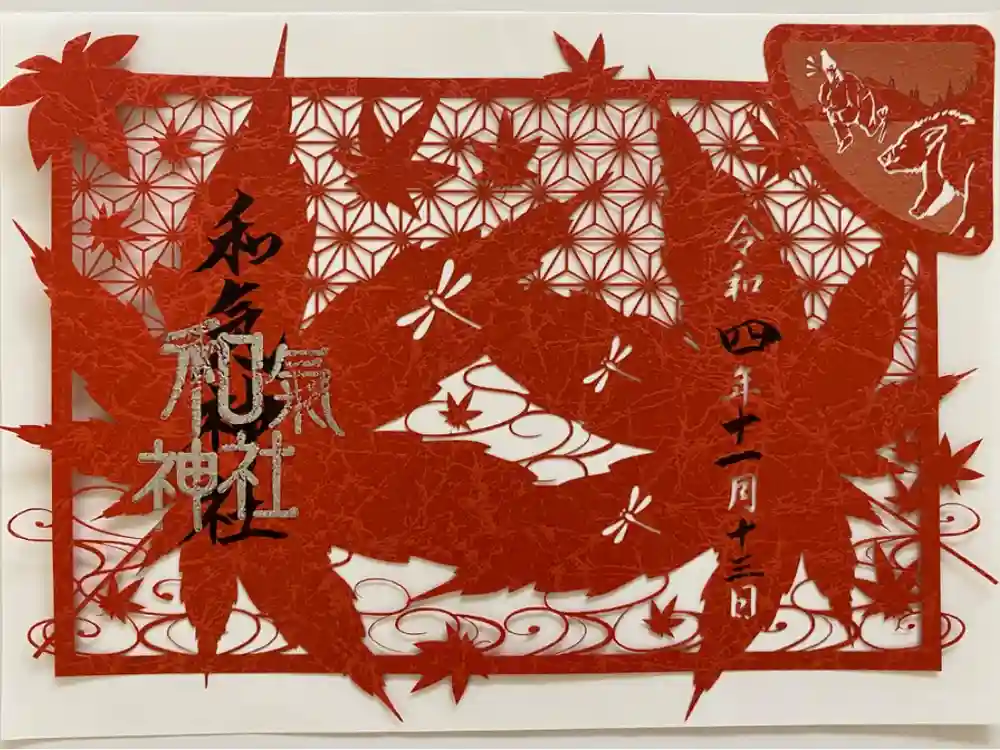 令和四年十一月十三日
和气神社
和氣
神社